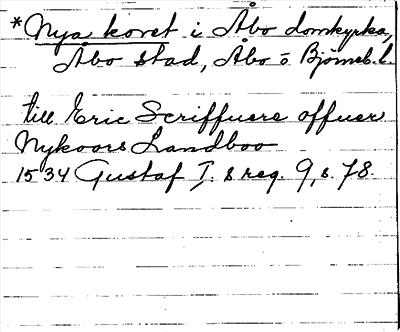 *Nya koret i Åbo domkyrka,
Åbo stad, Åbo o Björneb. l.
till Eric Scriffuere offuer
Nykoors Landboo
1534 Gustaf I. s reg. 9, s. 78.